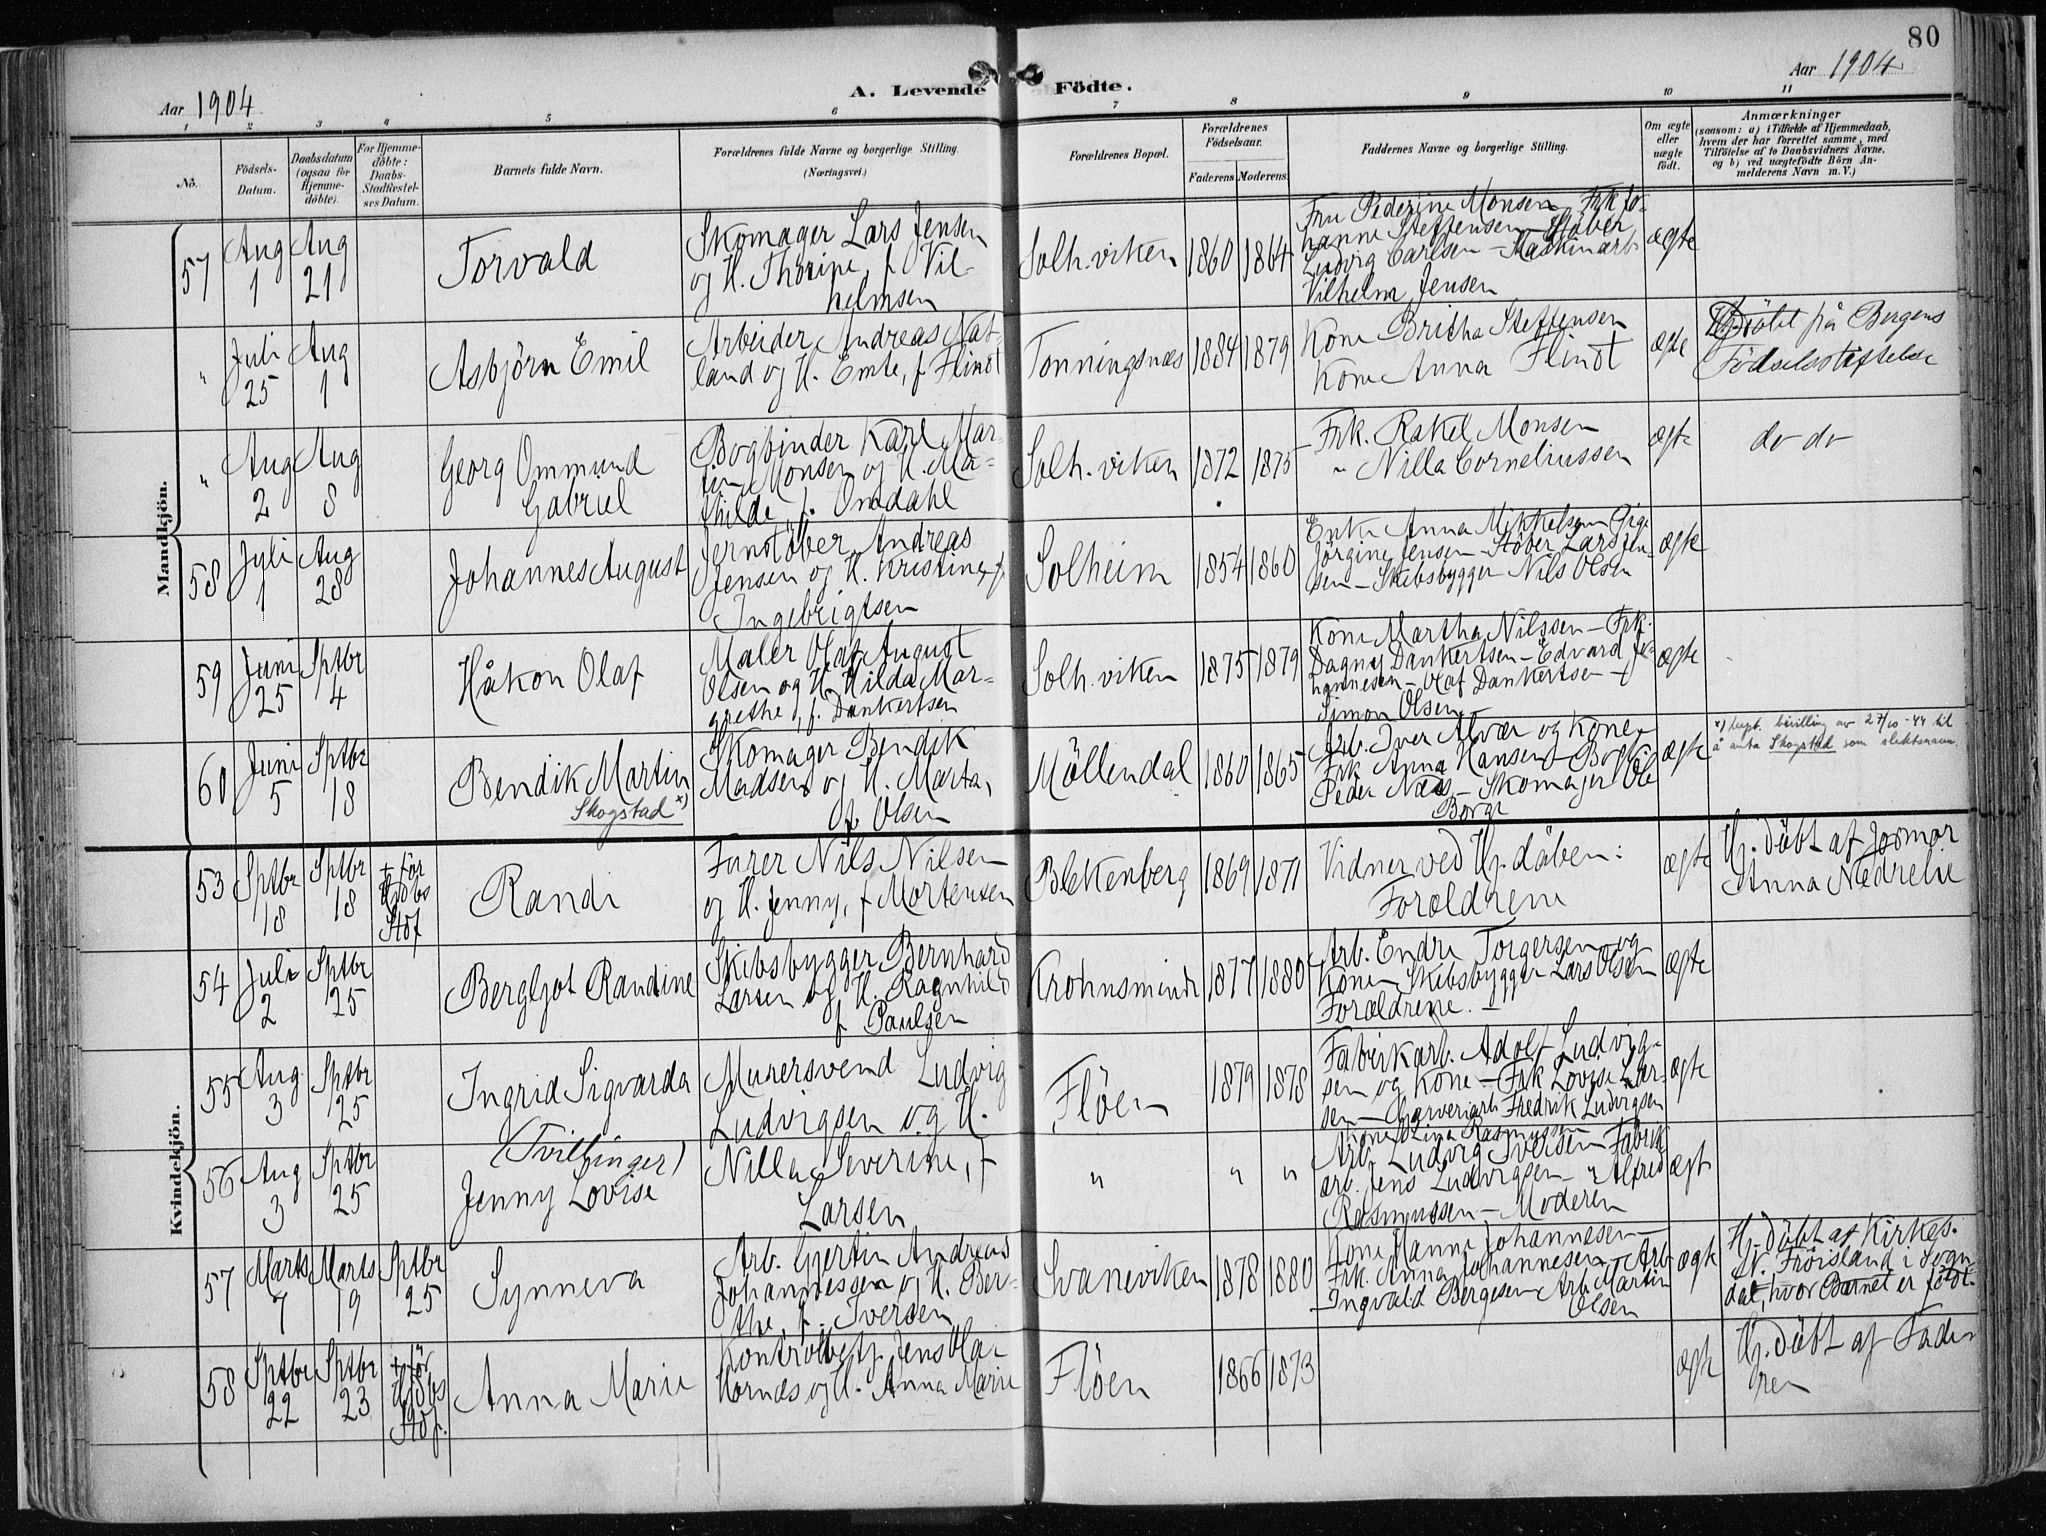 80
Aar 1904
A. Levende Födte.
Aar 1904
1 2 3 4 5 6 7 8 9 10 11
No.
Födsels-Datum.
Daabsdatum (ogsaa for Hjemme-döbte).
For Hjemme-döbte: Daabs-Stadfæstel-ses Datum.
Barnets fulde Navn.
Forældrenes fulde Navne og borgerlige Stilling.
(Næringsvei.)
Forældrenes Bopæl.
Forældrenes Födselsaar.
Faderens Moderens
Faddernes Navne og borgerlige Stilling.
Om ægte eller uægte födt.
Anmærkninger
(saasom: a) i Tilfælde af Hjemmedaab,
hvem der har forrettet samme, med
Tilföielse af to Daabsvidners Navne,
og b) ved uægtefödte Börn An-
melderens Navn m. V.)
Mandkjön.
57 Aug 1 Aug 21 Torvald
Skomager Lars Jensen
og H. Thorine, f. Vil-
helmsen
Solh.viken 1860 1864
Fru Pederine Monsen, Frk Jo-
hanne Steffensen - Støber
Ludvig Carlsen - Maskinarb
Vilhelm Jensen
ægte
" Juli 25 Aug 1 Asbjörn Emil
Arbeider Andreas Nat-
land og H. Emte, f. Flindt
Tonningsnæs 1884 1879
Kone Britha Steffensen
Kone Anna Flindt
ægte
Hj.döbt på Bergens
Födselsstiftelse
" Aug 2 Aug 8 Georg Ommund
Gabriel
Bogbinder Karl Mar-
tin Monsen og H. Mat-
hilde f. Omdahl
Solh.viken 1872 1875
Frk. Rakel Monsen
" Nilla Corneliussen
ægte
do do
58 Juli 1 Aug 28 Johannes August
Jernstöber Andreas
Jensen og H. Kristine, f
Ingebrigtsen
Solheim 1854 1860
Enke Anna Mikkelsen Pige
Jörgine Jensen - Støber Lars Jen-
sen - Skibsbygger Nils Olsen
ægte
59 Juni 25 Sptbr 4 Håkon Olaf
Maler Olaf August
Olsen og H. Hilda Mar-
grethe, f. Dankertsen
Solh.viken 1875 1879
Kone Martha Nilssen - Frk.
Dagny Dankertsen - Edvard Jo-
hannesen - Olaf Dankertsen -
Simon Olsen
ægte
60 Juni 5 Sptbr 18 Bendik Martin
Skogstad x)
Skomager Bendik
Madsen og H. Marta,
f. Olsen
Möllendal 1860 1865
Arb. Iver Alvær og Kone
Frk Anna Hansen -
Peder Næs - Skomager Ole
Borge
ægte
x) bevilling av 27/10-44 til
å anta Skogstad som slektsnavn.
Kvindekjön.
53 Sptbr 18 Sptbr 18 + för Hjdbs Stdf Randi
Furer Nils Nilsen
og H. Jenny, f Mortensen
Blekenberg 1869 1871
Vidner ved Hj.dåben:
Forældrene
ægte
Hj.döbt af Jormor
Anna Nedrelie
54 Juli 2 Sptbr 25 Bergljot Randine
Skibsbygger Bernhard
Larsen og H. Ragnhild
f Paulsen
Krohnsminde 1877 1880
Arb. Endre Torgersen og
Kone - Skibsbygger Lars Olsen
Forældrene. -
ægte
55 Aug 3 Sptbr 25 Ingrid Sigvarda
Murersvend Ludvig
Ludvigsen og H.
Flöen 1879 1878
Fabrikarb. Adolf Ludvig-
sen og Kone - Frk Lovise Lar-
sen - Garveriarb Fredrik Ludvigsen
Kone Lina Rasmussen
ægte
(Tvillinger)
56 Aug 3 Sptbr 25 Jenny Lovise
Nilla Severine, f
Larsen
" " "
Arb. Ludvig Iversen Fabrik
arb. Jens Ludvigsen - " Alfred
Rasmussen - Moderen
ægt
57 Marts 7 Marts 19 Sptbr 25 Synneva
Arb. Gjertin Andreas
Johannessen og H. Ber-
the f. Iversen
Svaneviken 1878 1880
Kone Hanna Johannesen -
Frk. Anna Johannesen - Arb
Ingvald Bergesen Arb. Martin
Olsen
ægte
Hj.döbt af Kirkes.
N. Fröisland i Sogn
dal, hvor Barnet er födt.
58 Sptbr 22 Sptbr 23 + för Hjdbs Stdf. Anna Marie
Kontrolbetj. Jens
Kornæs og H. Anna Marie
Flöen 1866 1873
ægte
Hj.döbt af Fade
ren